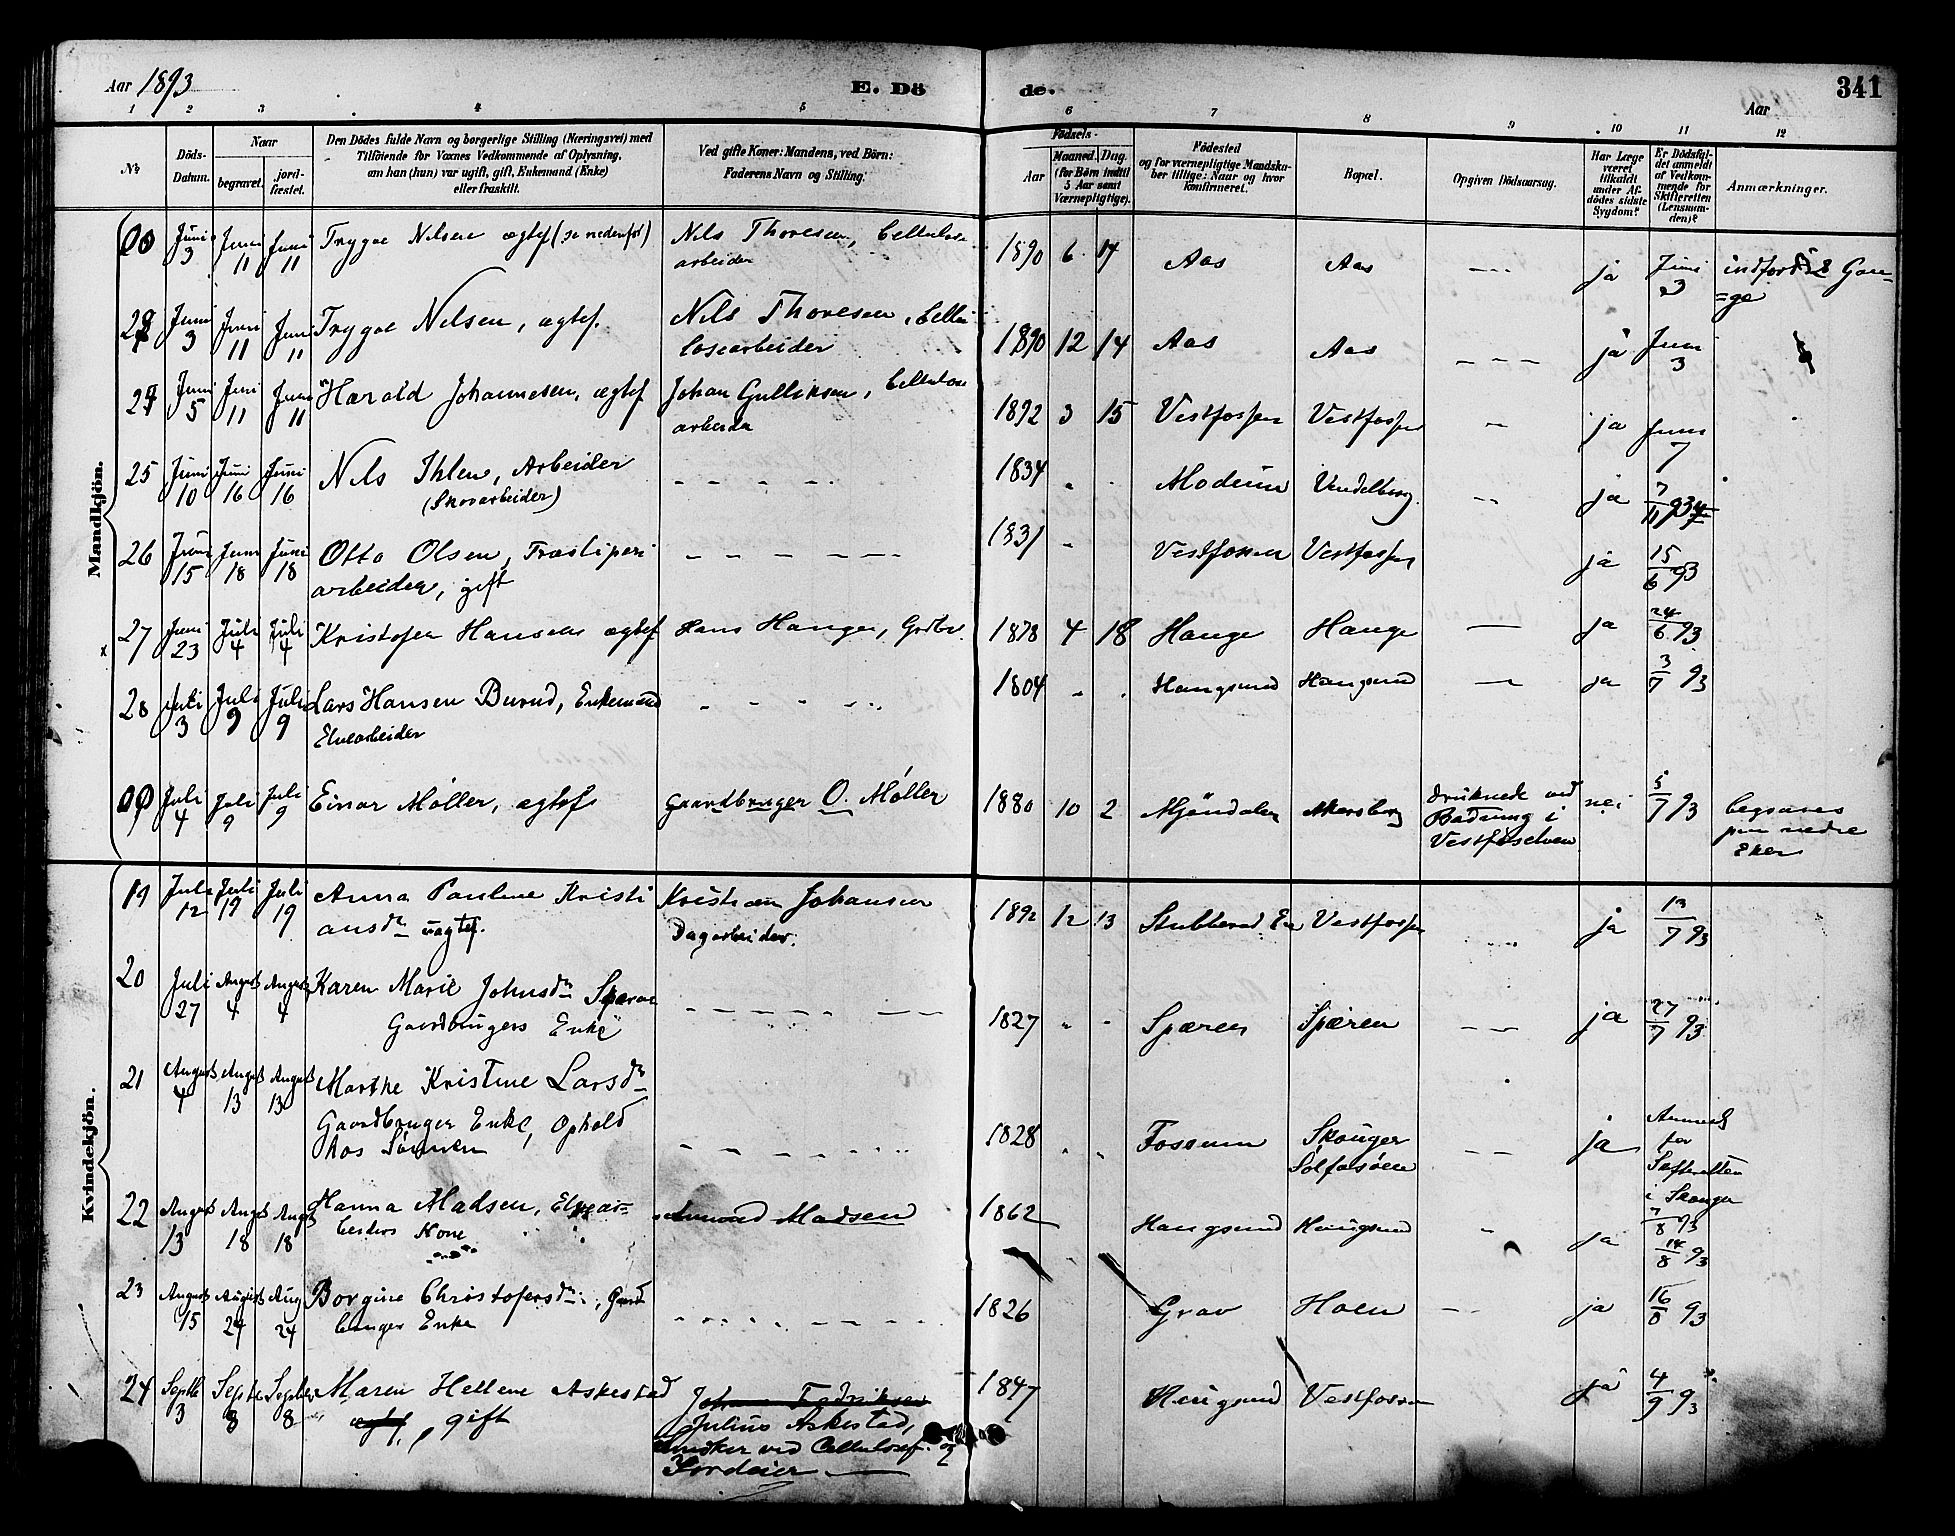 Aar 1893
E. Dö
de.
341
Aar
1 2 3 4 5 6 7 8 9 10 11 12
No.
Döds-
Datum.
Naar
begravet.
jord-
fæstet.
Den Dödes fulde Navn og borgerlige Stilling (Næringsvei) med
Tilföiende for Voxnes Vedkommende af Oplysning,
om han (hun) var ugift, gift, Enkemand (Enke)
eller fraskilt.
Ved gifte Koner: Mandens, ved Börn:
Faderens Navn og Stilling.
Födsels-
Aar
Maaned.
Dag.
(for Börn indtil
5 Aar samt
Værnepligtige).
Födested
og for værnepligtige Mandska-
ber tillige: Naar og hvor
konfirmeret.
Bopæl.
Opgiven Dödsaarsag.
Har Læge
været
tilkaldt
under Af-
dödes sidste
Sygdom?
Er Dödsfal-
det anmeldt
af Vedkom-
mende for
Skifteretten
(Lensman-
den)?
Anmærkninger.
Mandkjön.
00 Juni 3 Juni 11 Juni 11 Trygve Nilsen ægtef (se nedenfor) Nils Thoresen, Cellulose
arbeider
1890 6 14 Aas Aas ja Juni 3 indført 2 Gan-
=ge
Juni 3 Juni 11 Juni 11 Trygve Nelsen, ægtef. Nils Thoresen, Cellu
losearbeider
1890 12 14 Aas Aas ja Juni 3
Juni 5 Juni 11 Juni 11 Harald Johannesen, ægtef Johan Gulliksen, Cellulose
arbeider
1892 3 15 Vestfossen Vestfossen ja Juni 7
25 Juni 10 Juni 16 Juni 16 Nils Ihlen, Arbeider
(Skovarbeider)
1834 Modum Vendelborg ja 7/11 93
26 Juni 15 Juni 18 Juni 18 Otto Olsen, Træsliperi
arbeider, gift
1831 Vestfossen Vestfossen ja 15/6 93
27 Juni 23 Juli 4 Juli 4 Kristofer Hansen ægtef Hans Hauge, Grdbr.
1878 4 18 Hauge Hauge ja 24/6 93
28 Juli 3 Juli 9 Juli 9 Lars Hansen Burud, Enkemand
Elvearbeider
1804 Haugsund Haugsund ja 3/7 93
00 Juli 4 Juli 9 Juli 9 Einar Møller, ægtef Gaardbruger O. Møller
1880 10 2 Mjøndalen Akersberg druknede ved
Badning i
Vestfoselven
nei 5/7 93 begraves
paa nedre
Eker
Kvindekjön.
19 Juli 12 Juli 19 Juli 19 Anna Pauline Kristi
ansdr uægtef. Kristian Johansen
Dagarbeider.
1892 12 13 Stubberud Eie Vestfossen ja 13/7 93
20 Juli 27 August 4 August 4 Karen Marie Johnsdr Spæren
Gaardbrugers Enke
1827 Spæren Spæren ja 27/7 93
21 August 4 August 13 August 13 Marthe Kristine Larsdr
Gaardbruger Enke, Ophold
hos Sønnen
1828 Fossum Skouger
Sølfasøen
ja Anmeldt
for
Skifteretten
i Skouger
7/8 93
22 August 13 August 18 August 18 Hanna Madsen, Elvear=
beiders Kone
Amund Madsen
1862 Haugsund Haugsund ja 14/8 93
23 August 15 August 24 Aug 24 Borgine Christofersdr, Gaard
bruger Enke
1826 Grav Hoen ja 16/8 93
24 Septb 3 Septb 8 Septbr 8 Maren Hellene Askestad
ægtf, gift
Johan Fredriksen
Julius Askestad,
ved Cellulosef. og
Jordeier
1847 Haugsund Vestfossen ja 4/9 93